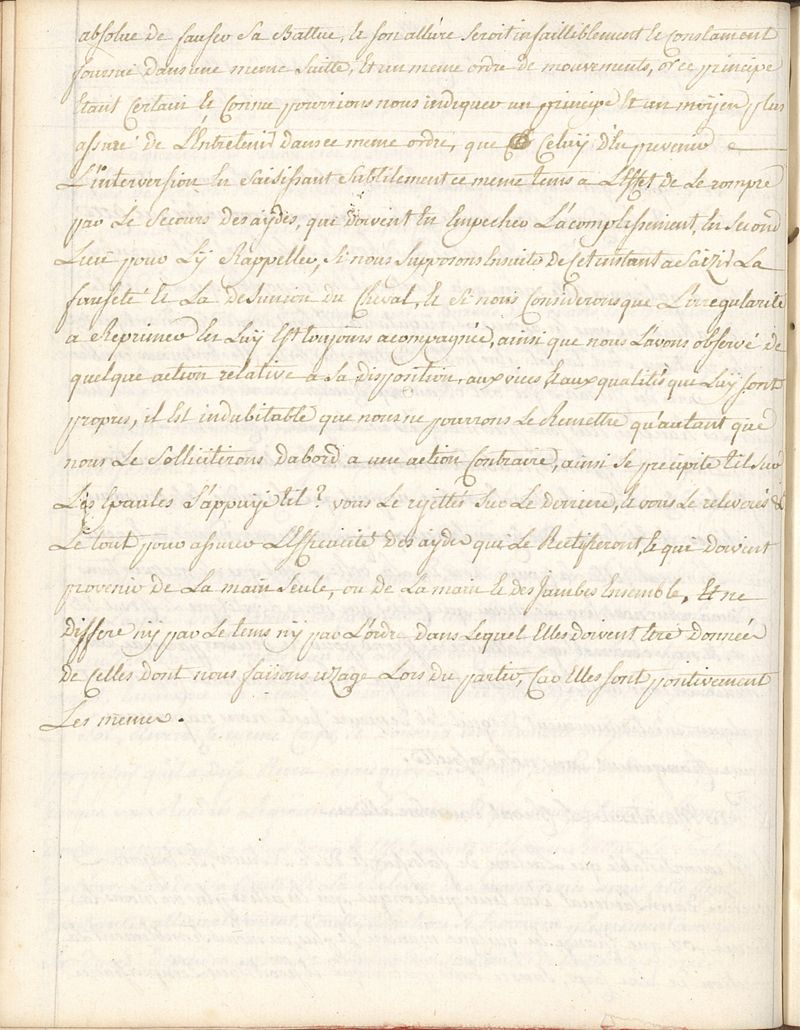 absolue de fauser Sa Battue, & son allure Seroit infailliblement & Constament
fournie dans une meme Suitte, Et un meme ordre de mouvements, or ce principe
Etant Certain & Connu pourrions nous indiquer un principe Et un moyen plus
assuré de L'Entretenir dans ce meme ordre, que Celuy d'En prevenir
L'interversion En Saisissant Subtilement ce meme tems a L'Effet de Le rompre
par Le Secours des aydes, que doivent En Empecher L'acomplissement, En Second
Lieu pour L'y Rappeller, Si nous Supposons Ensuite de Cet instant a Saizir La
fauseté & La desunion du Cheval, & Si nous Considerons que L'irregularité
a Reprimer En Luy Est toujours acompagnée, ainsi que nous L'avons observé de
quelque action relative a Sa disposition, aux vices & aux qualités que Luy sont
propres, il Est indubitable que nous ne pourrons Le Remettre qu'autant que
nous Le Solliciterons dabord a une action Contraire, ainsi Se precipite til Sur
Les Epaules S'appuye til? vous Le rejettés Sur Le derriere, & vous Le releverés &
Le tout pour assurer L'Efficacité des aydes qui Le Rectifieront, & qui doivent
provenir de La main Seule, ou de La main & des Jambes Ensemble, Et ne
differe n'y par Le tems n'y par L'ordre dans Lequel Elles doivent Etre données
de Celles dont nous faisons uzage Lors du partir, Car Elles sont positivement
Les memes.